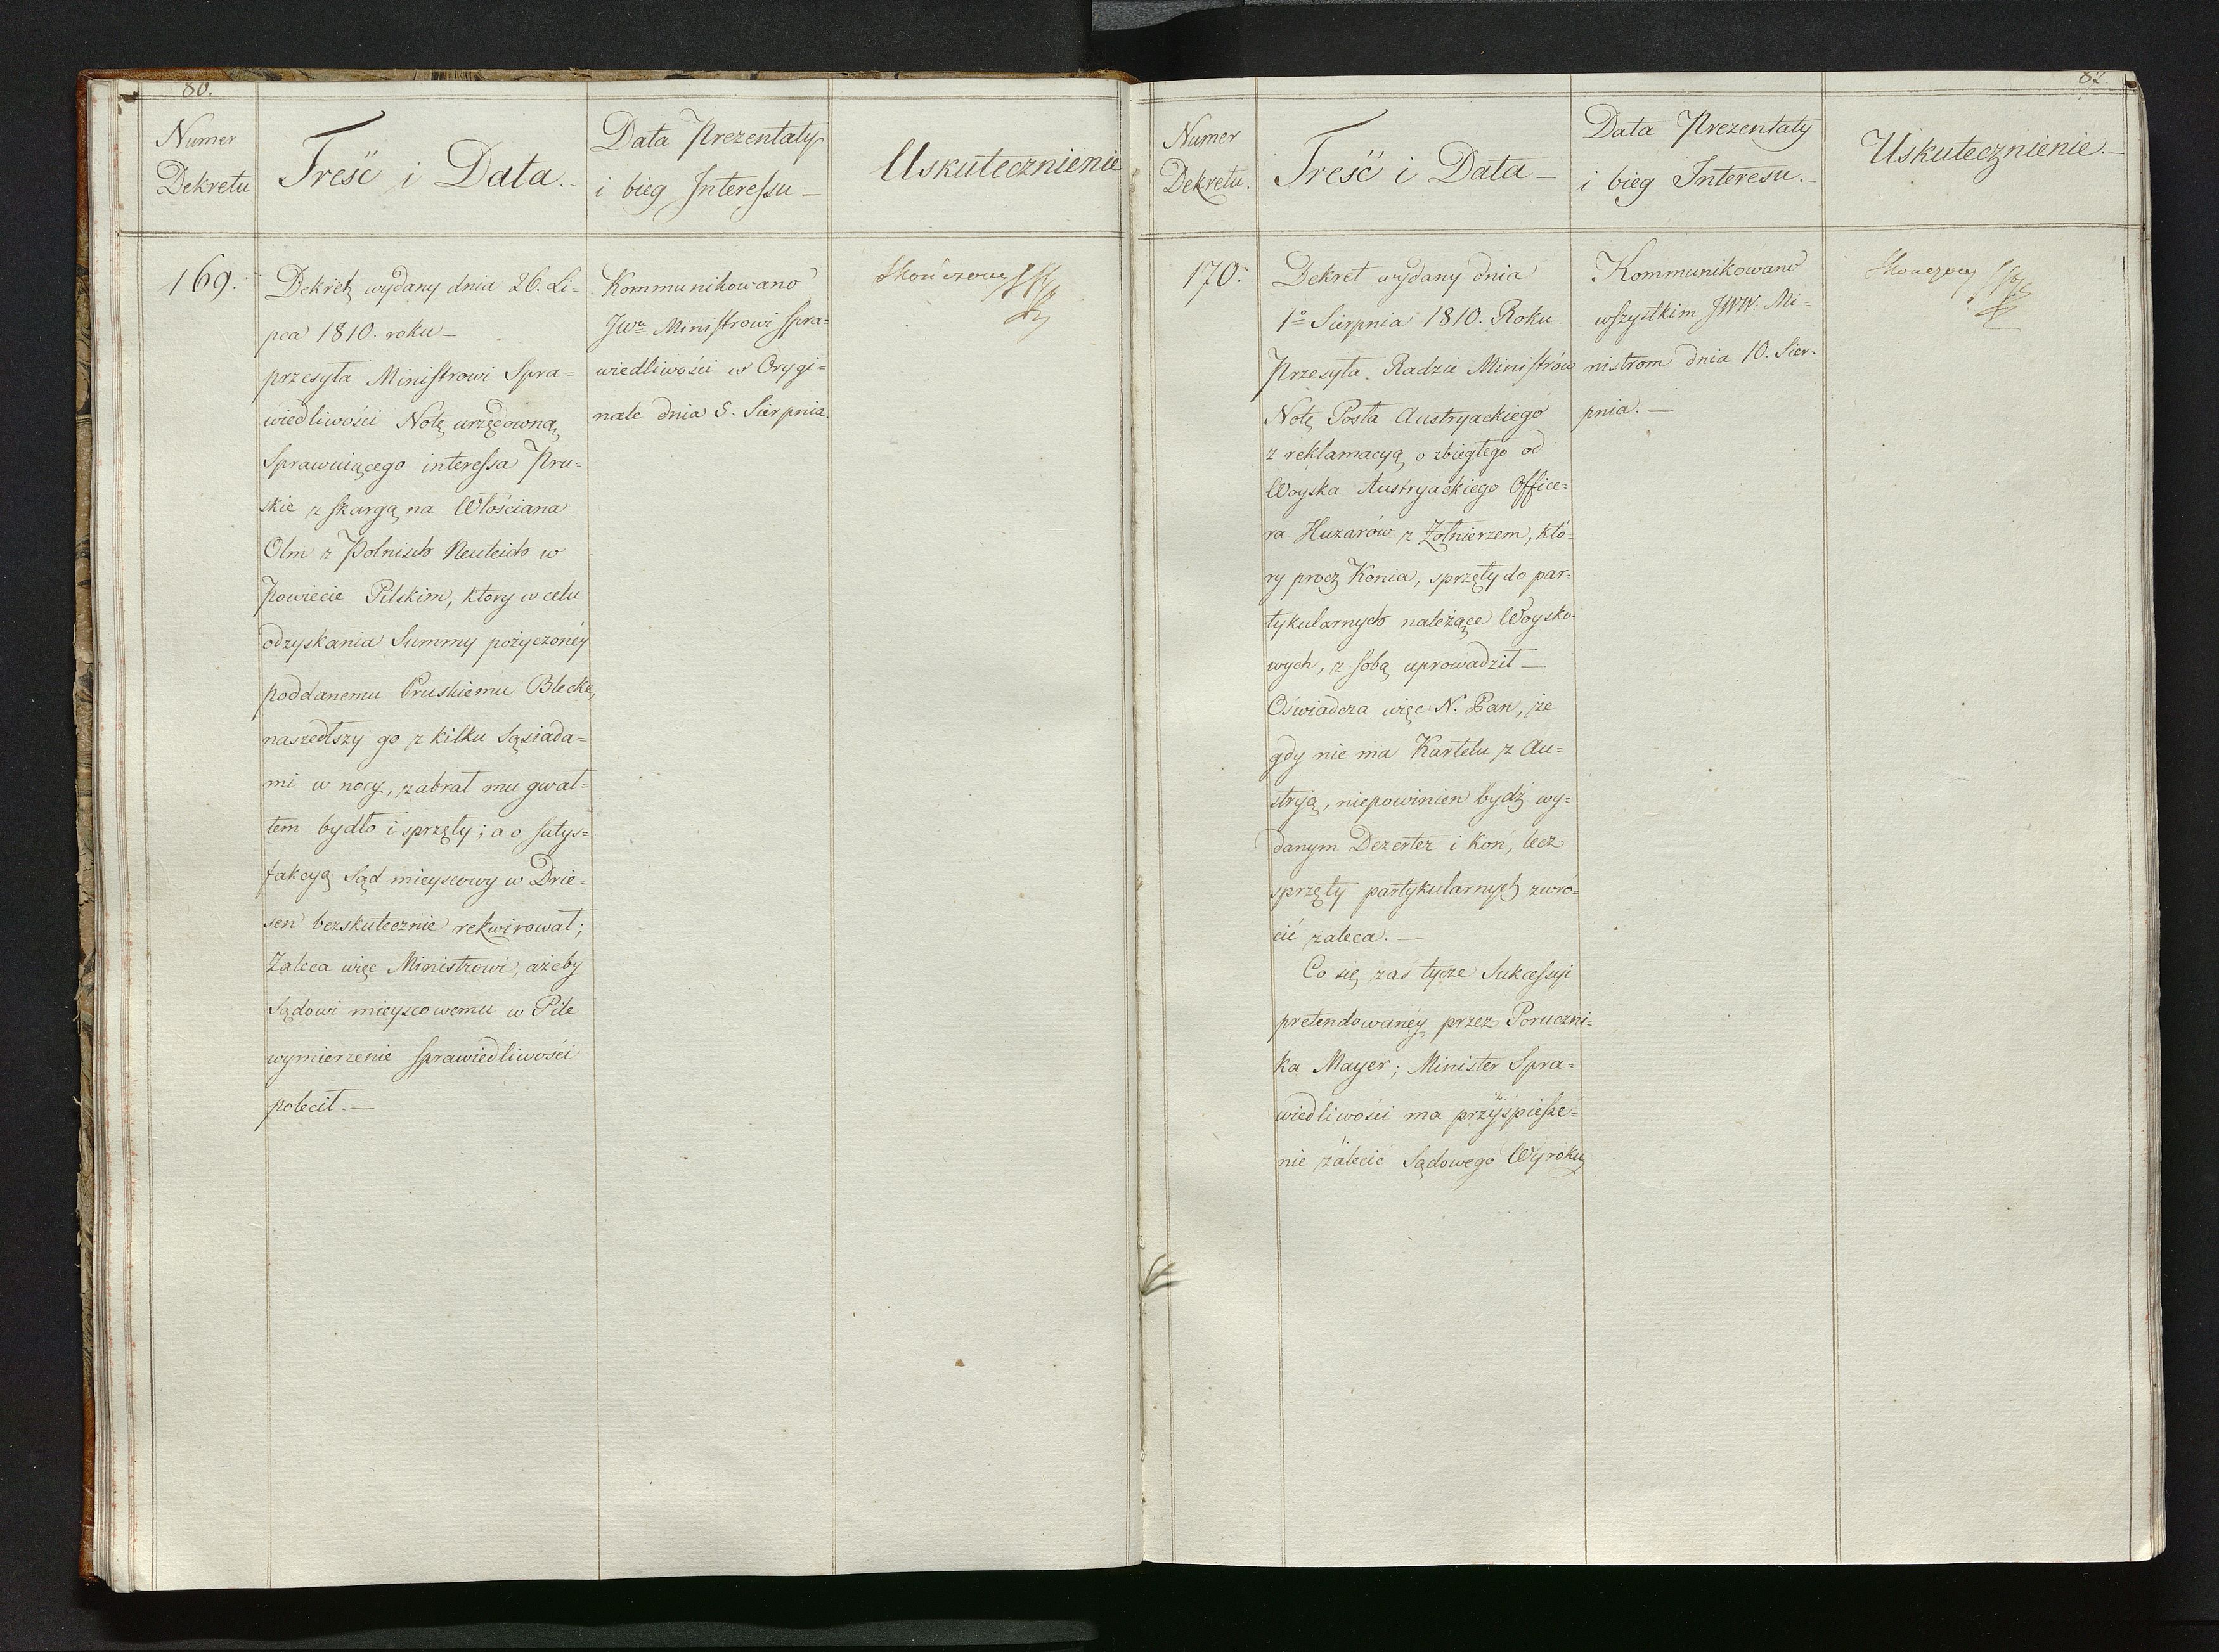 80.
Numer
Dekretu
Treść i Data.
Data Prezentaty
i bieg Interessu
Uskutecznienie
169.
Dekret wydany dnia 26. Li=
pca 1810. roku
przesyła Ministrowi Spra=
wiedliwości Notę urzędowną
Sprawuiącego interessa Pru=
skie z skargą na Włościana
Olm z Polnisch Neuteich w
Powiecie Pilskim, ktory w celu
odzyskania Summy pożyczoney
poddanemu Pruskiemu Blecke,
naszedłszy go z kilku Sąsiada=
mi w nocy, zabrał mu gwał=
tem bydło i sprzęty; a o satys=
fakcyą Sąd mieyscowy w Drie=
sen bezskutecznie rekwirował;
Zaleca więc Ministrowi, ażeby
Sądowi mieyscowemu w Pile
wymierzenie Sprawiedliwości
polecił.—
Kommunikowano
JWu Ministrowi Spra=
wiedliwości w Orygi=
nale dnia 5. Sierpnia
Skończony
Numer
Dekretu.
Treść i Data—
Data Prezentaty
i bieg Interesu.—
Uskutecznienie.—
170.
Dekret wydany dnia
1º Sierpnia 1810. Roku
Przesyła Radzie Ministrów
Notę Posła Austryackiego
z reklamacyą o zbiegłego od
Woyska Austryackiego Office=
ra Huzarów z Żołnierzem, któ=
ry procz Konia, sprzęty do par=
tykularnych należące Woysko=
wych, z sobą uprowadził—
Oświadcza więc N. Pan, że
gdy nie ma Kartelu z Au=
stryą, niepowinien bydź wy=
danym Dezerter i koń, lecz
sprzęty partykularnych zwró=
cić zaleca.—
Co się zaś tycze Sukcessyi
pretendowaney przez Poruczni=
ka Mayer; Minister Spra=
wiedliwości ma przyśpiesze=
nie zalecić Sądowego Wyroku
Kommunikowano
wszystkim JWW: Mi=
nistrom dnia 10. Sier=
pnia.—
Skończony